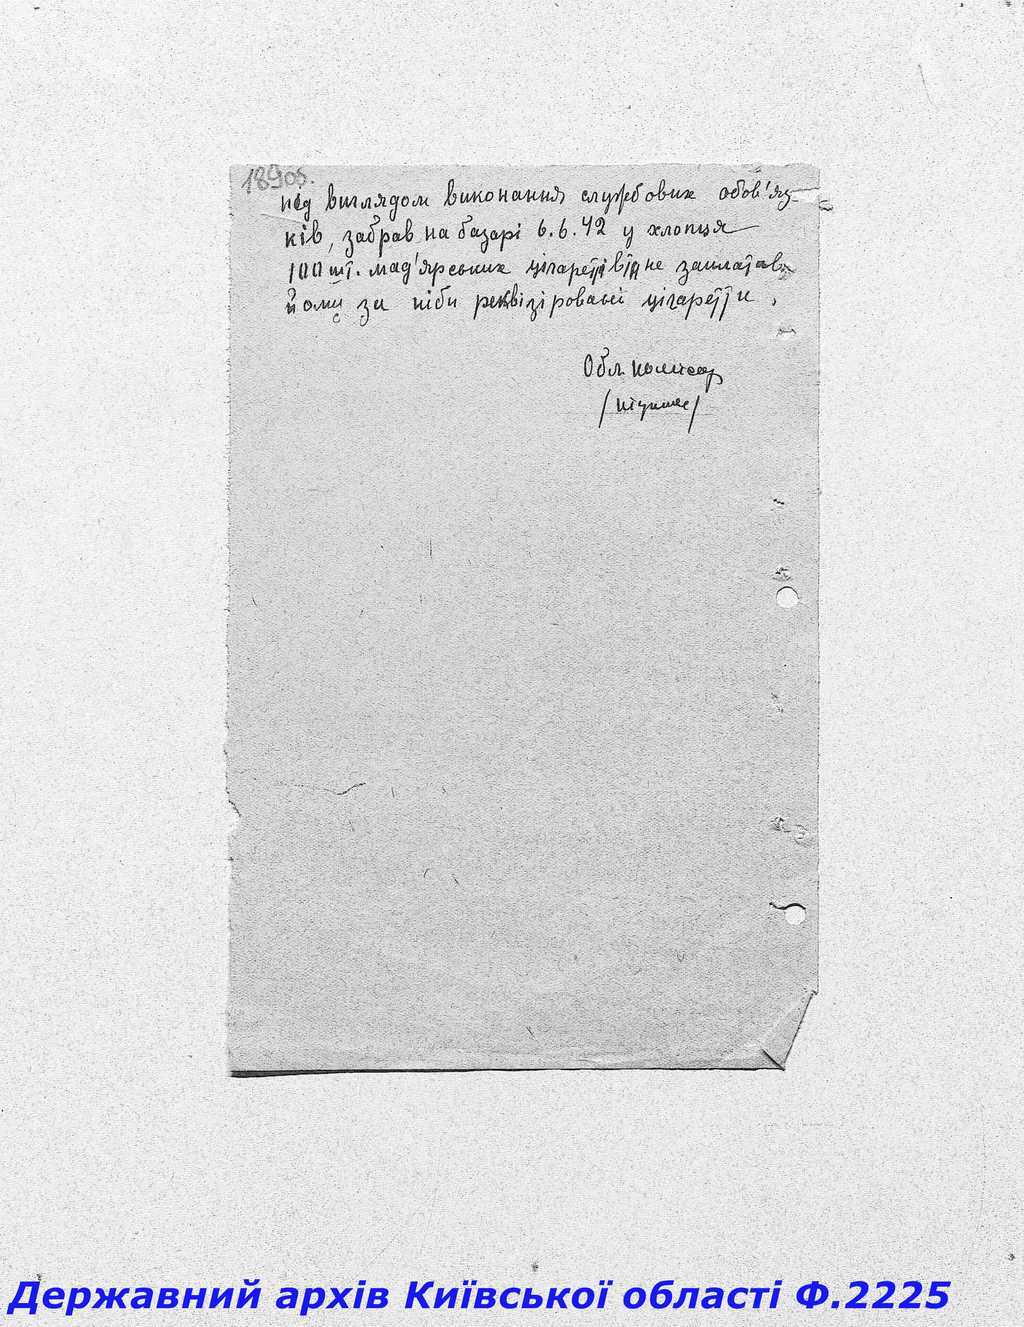 189об.
під виглядом виконання службових обов'яз-
ків, забрав на базарі 6.6.42 у хлопця
100 шт. мад'ярських цігареттів та не заплатив
йому за ніби реквізіровані цігаретти.
Обл. комісар
Державний архів Київської області Ф.2225